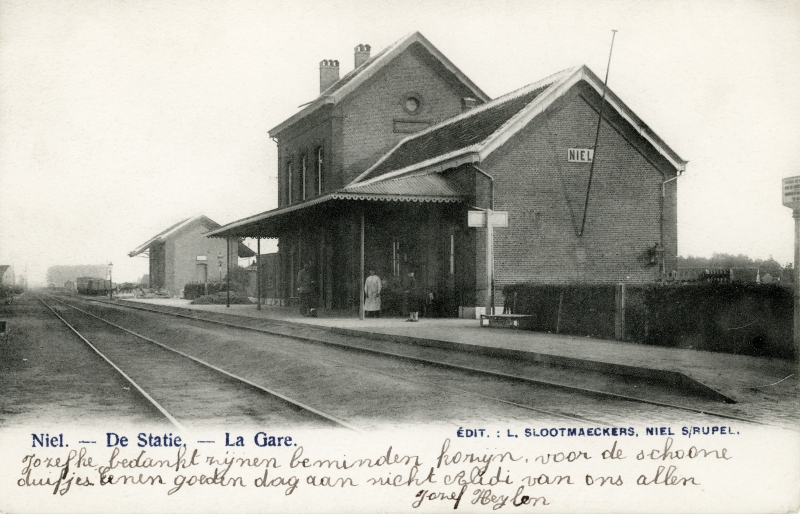 NIEL
Niel. — De Statie. — La Gare.
ÉDIT. : L. SLOOTMAECKERS, NIEL S/RUPEL.
Jozefke bedankt zijnen beminden kozijn. voor de schoone
duifjes Eenen goeden dag aan nicht Eladi van ons allen
Jozef Heylen